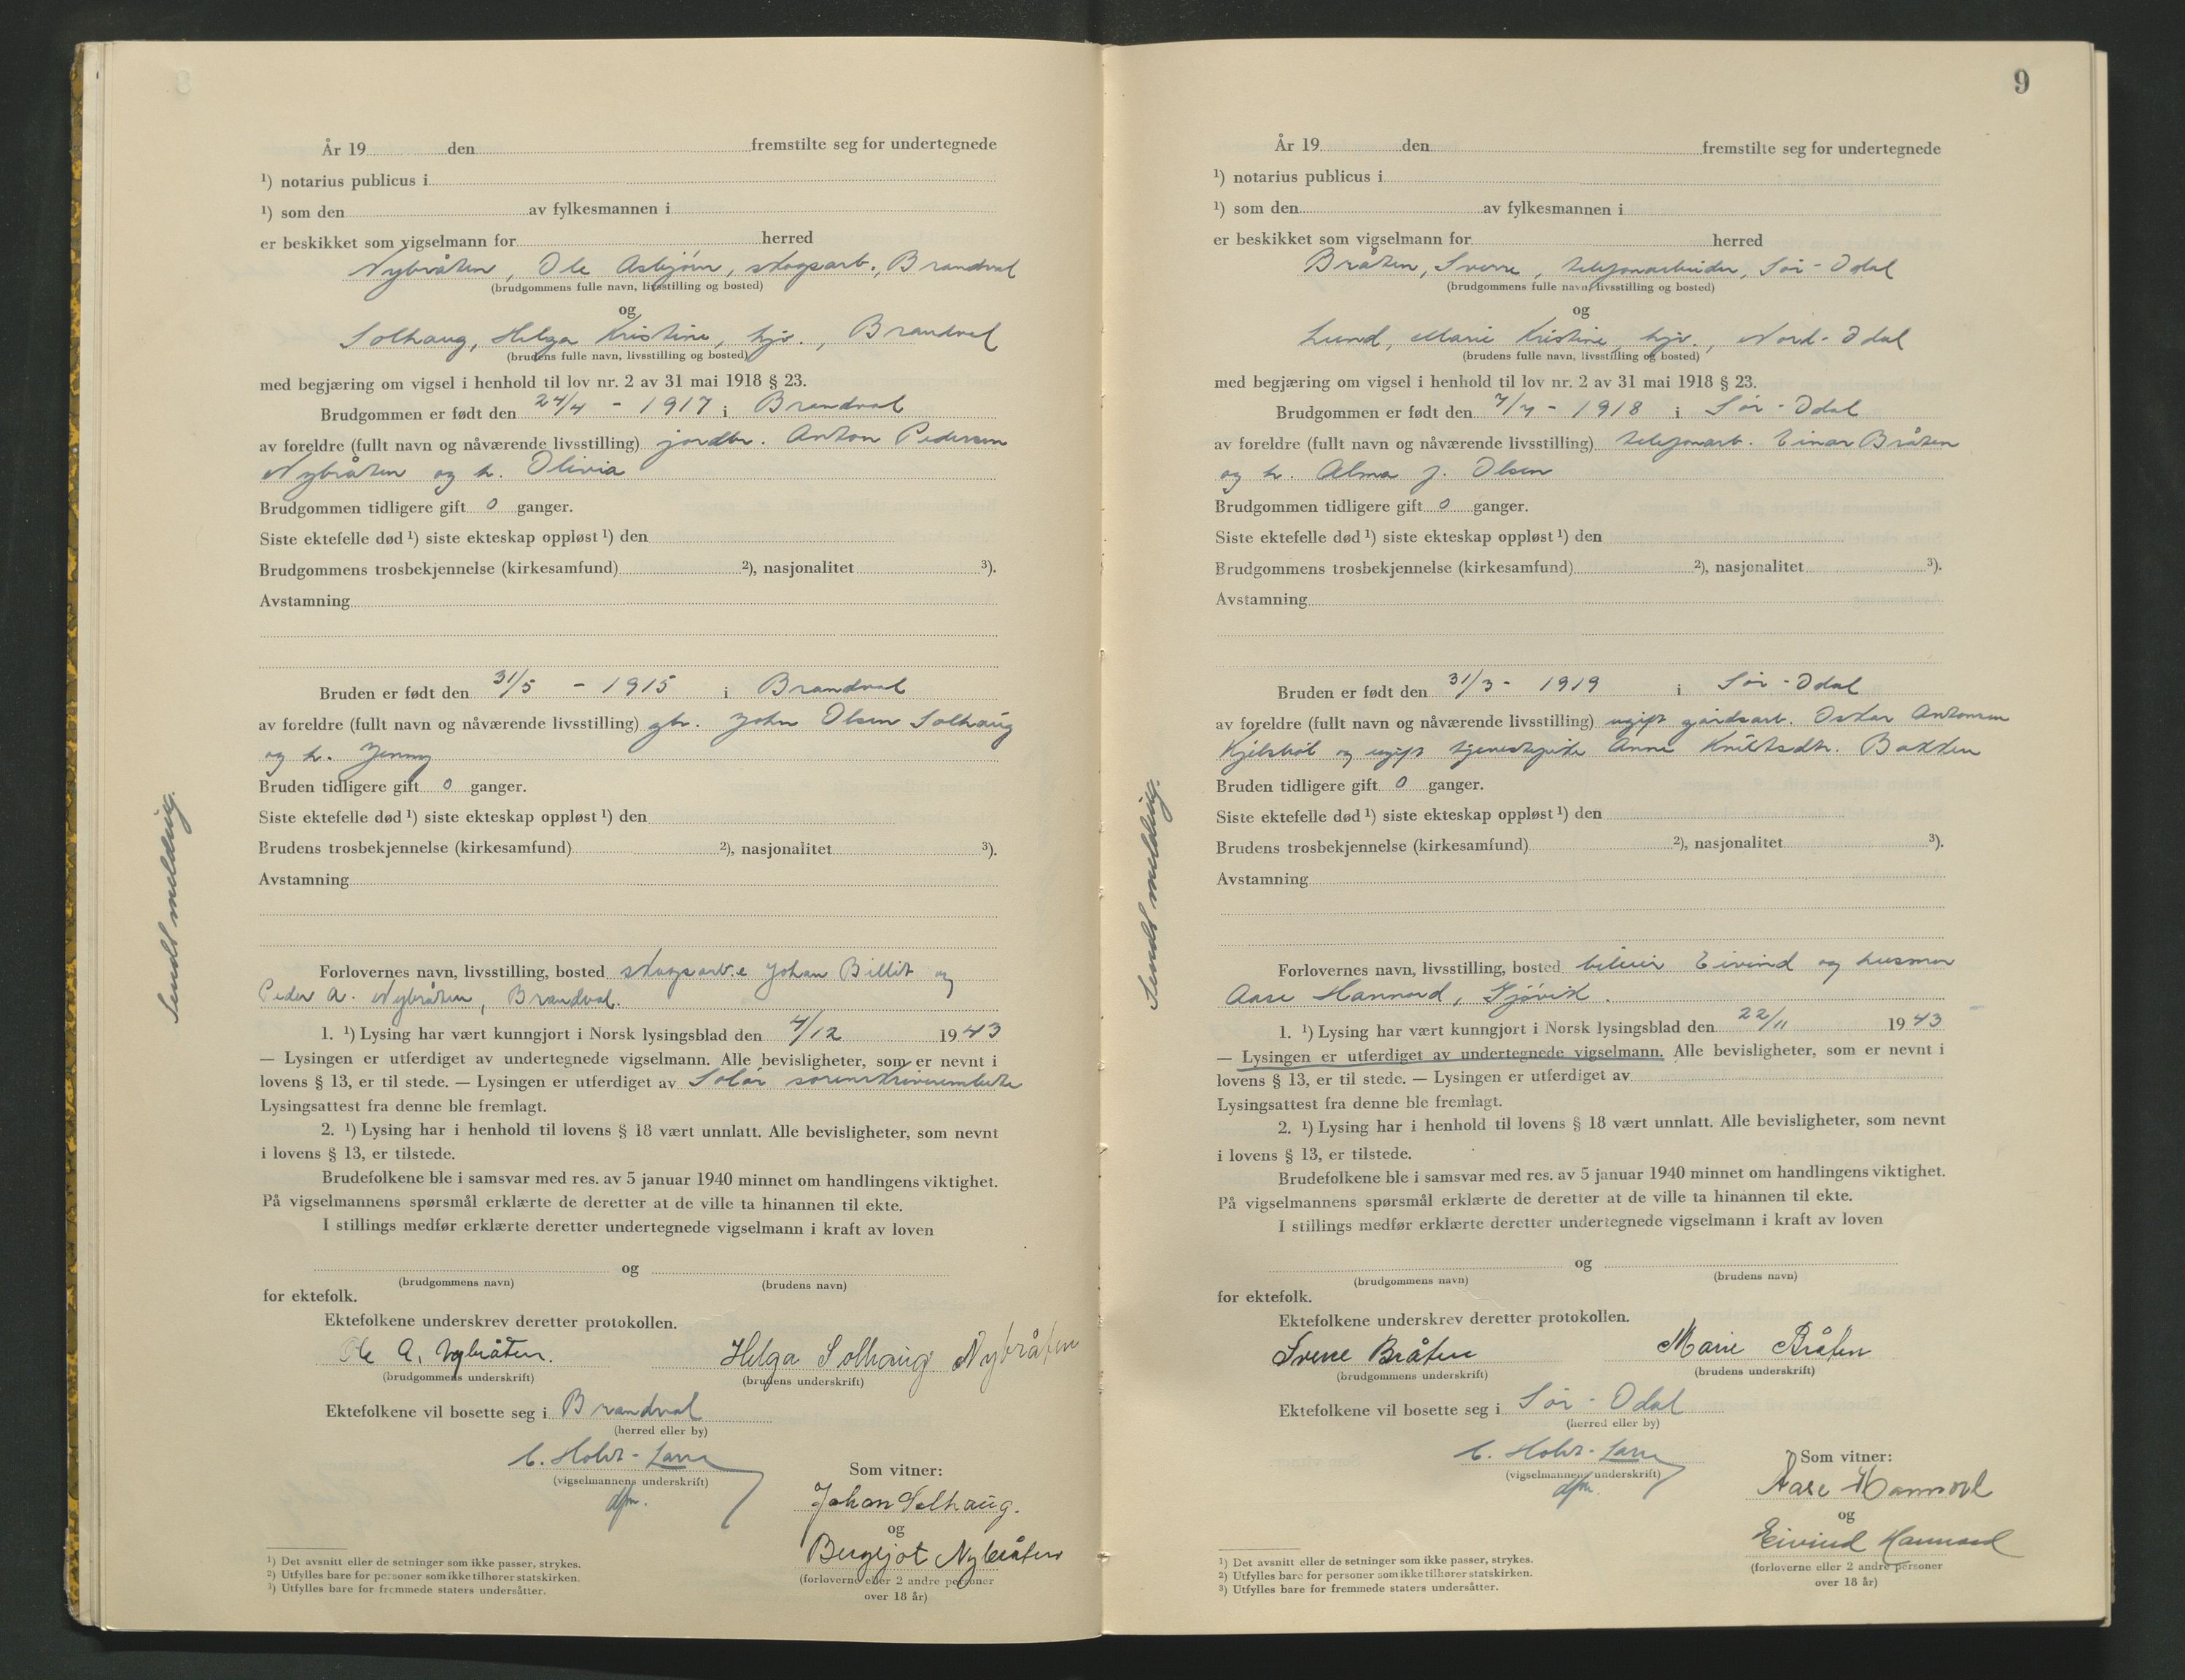 År 19 den fremstilte seg for undertegnede
¹) notarius publicus i
¹) som den av fylkesmannen i
er beskikket som vigselmann for herred
Nybråten, Ole Asbjørn, skogsarb., Brandval
(brudgommens fulle navn, livsstilling og bosted)
og
Solhaug, Helga Kristine, hjv., Brandval
(brudens fulle navn, livsstilling og bosted)
med begjæring om vigsel i henhold til lov nr. 2 av 31 mai 1918 § 23.
Brudgommen er født den 24/4 - 1917 i Brandval
av foreldre (fullt navn og nåværende livsstilling) jordbr. Anton Pedersen
Nybråten og h. Olivia
Brudgommen tidligere gift 0 ganger.
Siste ektefelle død ¹) siste ekteskap oppløst ¹) den
Brudgommens trosbekjennelse (kirkesamfund) ²), nasjonalitet ³).
Avstamning
Bruden er født den 31/5 - 1915 i Brandval
av foreldre (fullt navn og nåværende livsstilling) gbr. John Olsen Solhaug
og h. Jenny
Bruden tidligere gift 0 ganger.
Siste ektefelle død ¹) siste ekteskap oppløst ¹) den
Brudens trosbekjennelse (kirkesamfund) ²), nasjonalitet ³).
Avstamning
Forlovernes navn, livsstilling, bosted skogsarb.e Johan Billit og
Peder A. Nybråten, Brandval.
1. ¹) Lysing har vært kunngjort i Norsk lysingsblad den 4/12 1943
— Lysingen er utferdiget av undertegnede vigselmann. Alle bevisligheter, som er nevnt i
lovens § 13, er til stede. — Lysingen er utferdiget av Solør sorenskriverembete
Lysingsattest fra denne ble fremlagt.
2. ¹) Lysing har i henhold til lovens § 18 vært unnlatt. Alle bevisligheter, som nevnt
i lovens § 13, er tilstede.
Brudefolkene ble i samsvar med res. av 5 januar 1940 minnet om handlingens viktighet.
På vigselmannens spørsmål erklærte de deretter at de ville ta hinannen til ekte.
I stillings medfør erklærte deretter undertegnede vigselmann i kraft av loven
og
(brudgommens navn) (brudens navn)
for ektefolk.
Ektefolkene underskrev deretter protokollen.
Ole A. Nybråten. Helga Solhaug Nybråten
(brudgommens underskrift) (brudens underskrift)
Ektefolkene vil bosette seg i Brandval
(herred eller by)
C. Holst-Larsen
(vigselmannens underskrift)
dfm.
Som vitner:
Johan Solhaug.
og
Bergljot Nybråten
(forloverne eller 2 andre personer
over 18 år)
¹) Det avsnitt eller de setninger som ikke passer, strykes.
²) Utfylles bare for personer som ikke tilhører statskirken.
³) Utfylles bare for fremmede staters undersåtter.
Sendt melding.
9
År 19 den fremstilte seg for undertegnede
¹) notarius publicus i
¹) som den av fylkesmannen i
er beskikket som vigselmann for herred
Bråten, Sverre, telefonarbeider, Sør-Odal
(brudgommens fulle navn, livsstilling og bosted)
og
Lund, Marie Kristine, hjv., Nord-Odal
(brudens fulle navn, livsstilling og bosted)
med begjæring om vigsel i henhold til lov nr. 2 av 31 mai 1918 § 23.
Brudgommen er født den 7/7 - 1918 i Sør-Odal
av foreldre (fullt navn og nåværende livsstilling) telefonarb. Einar Bråten
og h. Alma J. Olsen
Brudgommen tidligere gift 0 ganger.
Siste ektefelle død ¹) siste ekteskap oppløst ¹) den
Brudgommens trosbekjennelse (kirkesamfund) ²), nasjonalitet ³).
Avstamning
Bruden er født den 31/3 - 1919 i Sør-Odal
av foreldre (fullt navn og nåværende livsstilling) ugift gårdsarb. Oskar Antonsen
og ugift tjenestepike Anna Knutsdtr. Bakken
Bruden tidligere gift 0 ganger.
Siste ektefelle død ¹) siste ekteskap oppløst ¹) den
Brudens trosbekjennelse (kirkesamfund) ²), nasjonalitet ³).
Avstamning
Forlovernes navn, livsstilling, bosted bileier Eivind og husmor
Aase Hannord, Gjøvik.
1. ¹) Lysing har vært kunngjort i Norsk lysingsblad den 22/11 1943
— Lysingen er utferdiget av undertegnede vigselmann. Alle bevisligheter, som er nevnt i
lovens § 13, er til stede. — Lysingen er utferdiget av
Lysingsattest fra denne ble fremlagt.
2. ¹) Lysing har i henhold til lovens § 18 vært unnlatt. Alle bevisligheter, som nevnt
i lovens § 13, er tilstede.
Brudefolkene ble i samsvar med res. av 5 januar 1940 minnet om handlingens viktighet.
På vigselmannens spørsmål erklærte de deretter at de ville ta hinannen til ekte.
I stillings medfør erklærte deretter undertegnede vigselmann i kraft av loven
og
(brudgommens navn) (brudens navn)
for ektefolk.
Ektefolkene underskrev deretter protokollen.
Sverre Bråten Marie Bråten
(brudgommens underskrift) (brudens underskrift)
Ektefolkene vil bosette seg i Sør-Odal
(herred eller by)
C. Holst-Larsen
(vigselmannens underskrift)
dfm.
Som vitner:
Aase Hannord
og
Eivind Hannord
(forloverne eller 2 andre personer
over 18 år)
¹) Det avsnitt eller de setninger som ikke passer, strykes.
²) Utfylles bare for personer som ikke tilhører statskirken.
³) Utfylles bare for fremmede staters undersåtter.
Sendt melding.